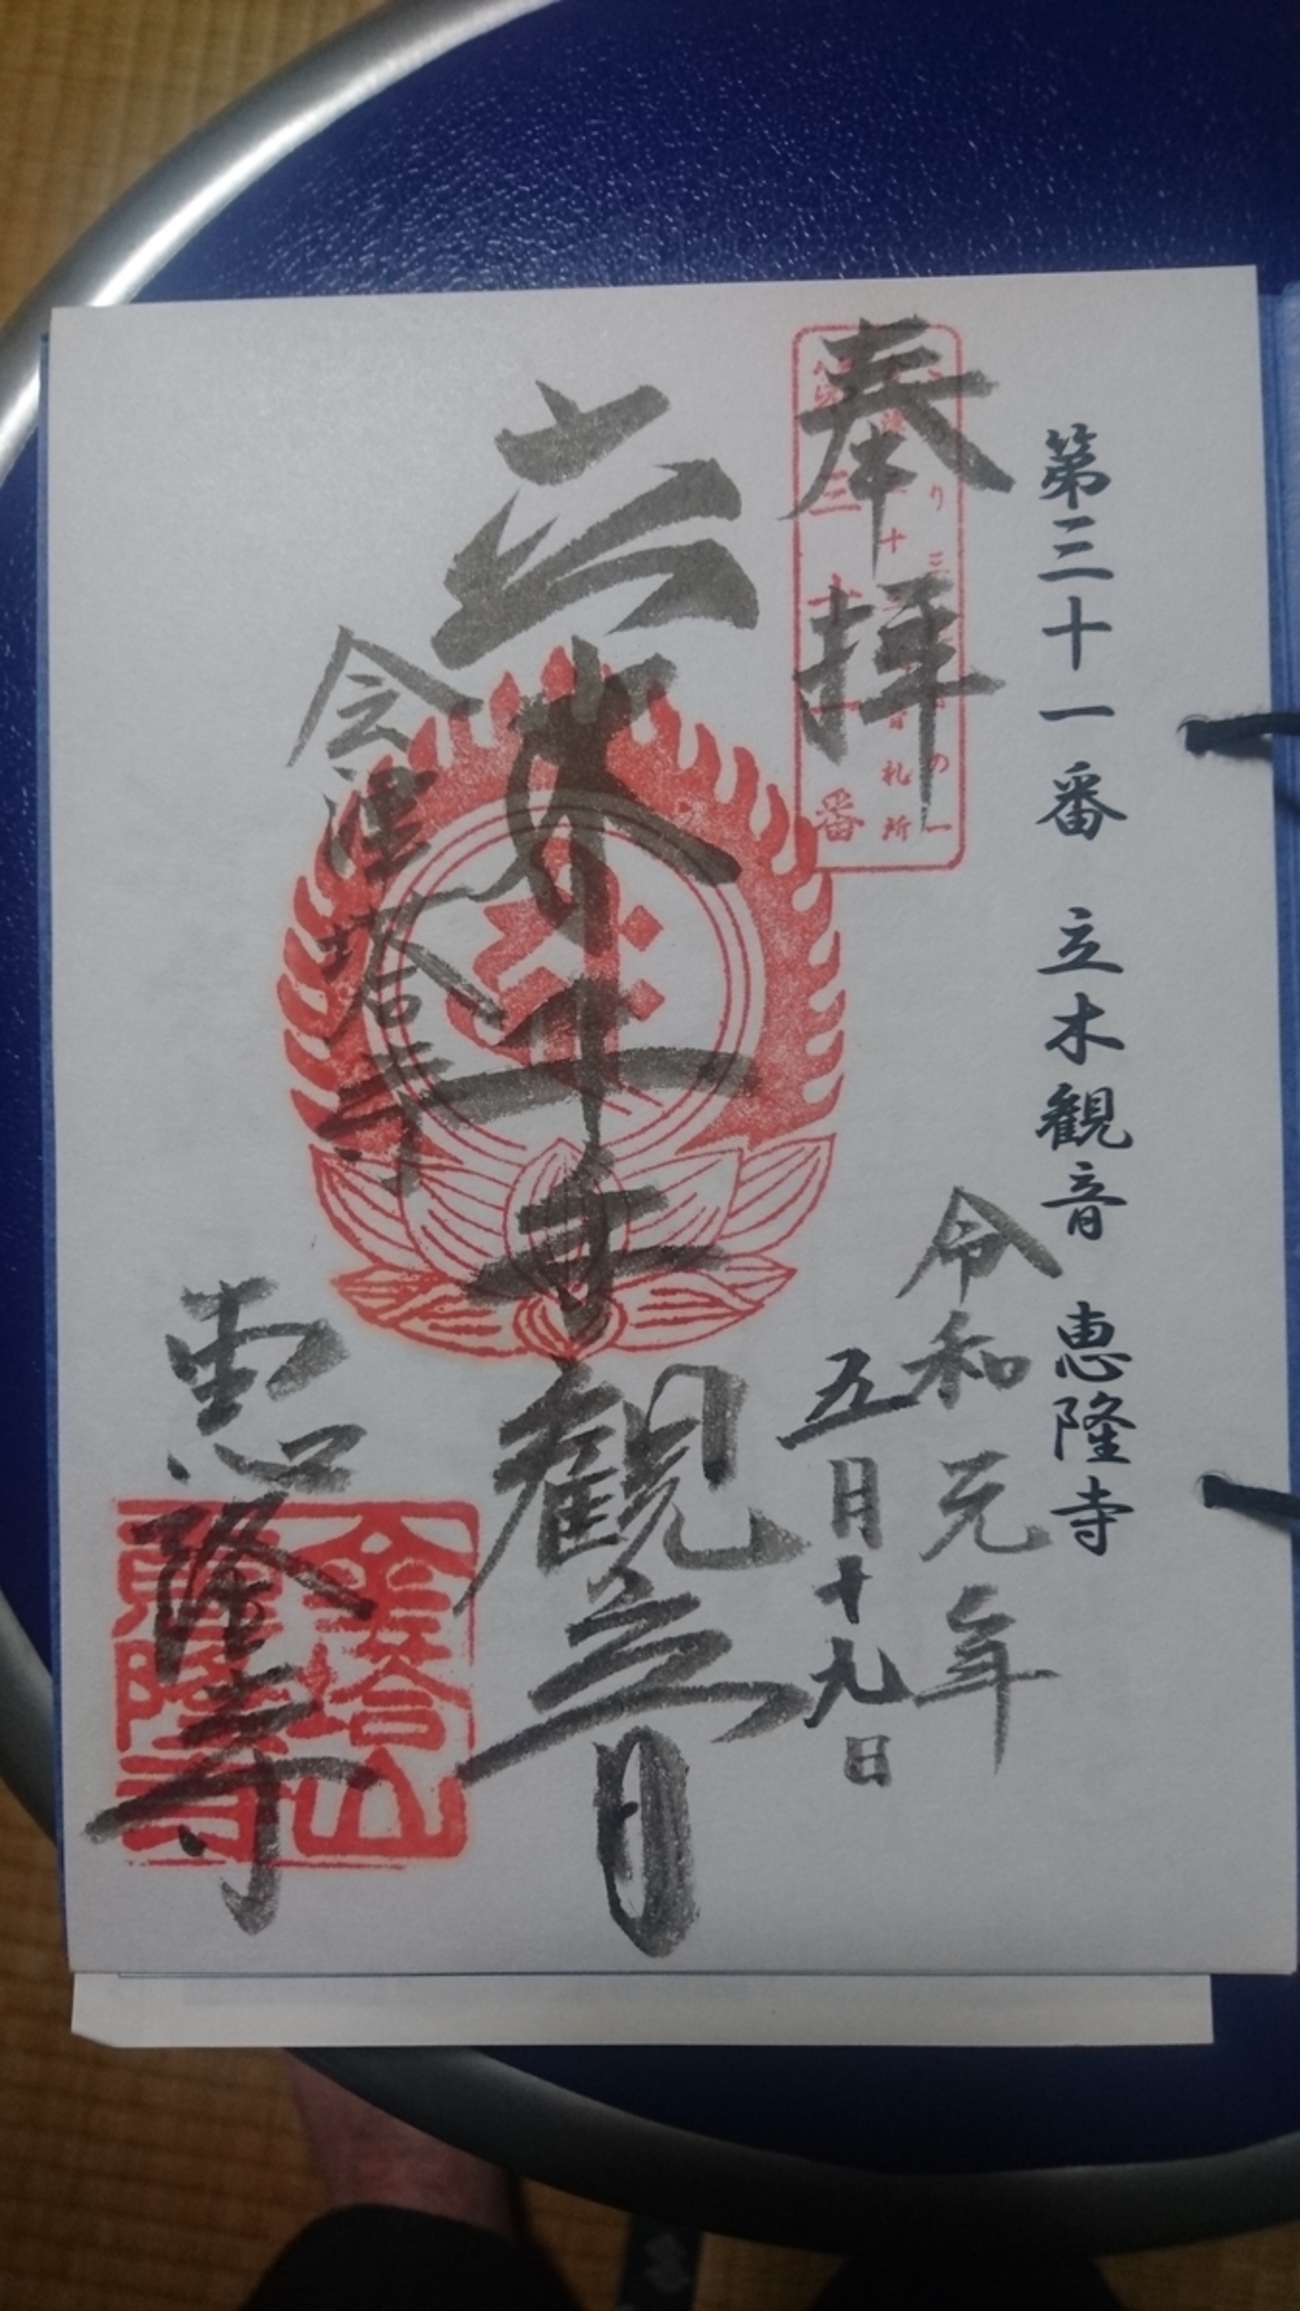 第三十一番 立木観音 恵隆寺
奉拝
令和元年
五月十九日
立木千手観音
会津塔寺
恵隆寺
札所
番
金塔山
恵隆寺